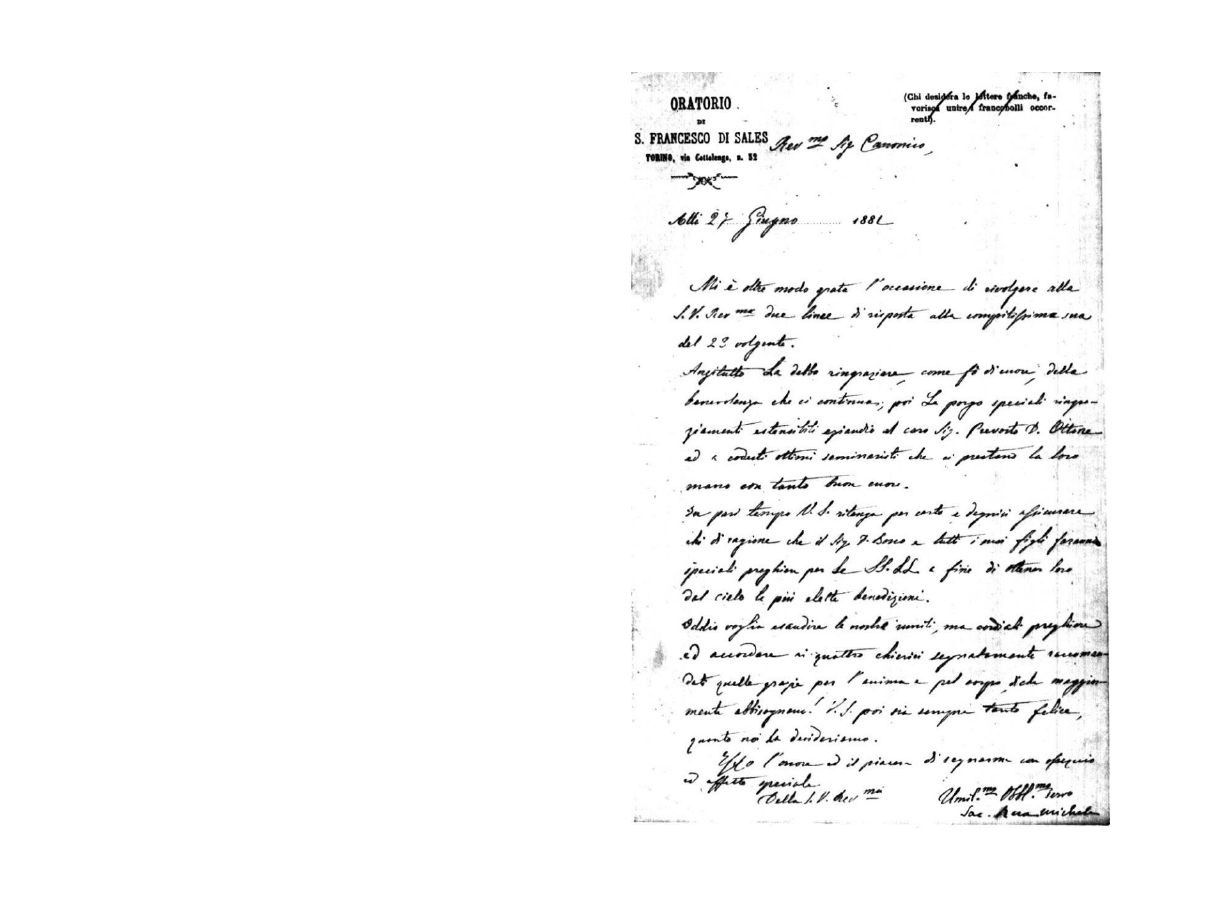 ORATORIO
DI
S. FRANCESCO DI SALES
TORINO, via Cottolengo, n. 32
(Chi desidera le lettere franche, fa-
vorisca unire i francobolli occor-
renti).
Rev mo Sig Canonico,
Addi 27 Giugno 1881
Mi è oltre modo grata l'occasione di rivolgere alla
S. V. Rev ma due linee di risposta alla compitissima sua
del 23 volgente.
Anzitutto La debbo ringraziare, come fò di cuore, della
benevolenza che ci continua; poi La porgo speciali ringra-
ziamenti estensibili eziandio al caro Sig. Prevosto D. Ottone
ed a codesti ottimi seminaristi che ci prestano la loro
mano con tanto buon cuore.
In pari tempo V. S. ritenga per certo e degnisi assicurare
chi di ragione che il Sig. D. Bosco e tutti i suoi figli faranno
speciali preghiere per Le SS. LL. a fine di ottener loro
dal cielo le più elette benedizioni.
Iddio voglia esaudire le nostre umili, ma cordiali preghiere
ed accordare ai quattro chierici segnatamente raccoman-
dati quelle grazie per l'anima e pel corpo, di che maggior-
mente abbisognano! V. S. poi sia sempre tanto felice,
quanto noi La desideriamo.
l'onore ed il piacere di segnarmi con ossequio
ed affetto speciale
Della S. V. Rev ma
Umil. mo Obbl. mo servo
Sac. Rua Michele